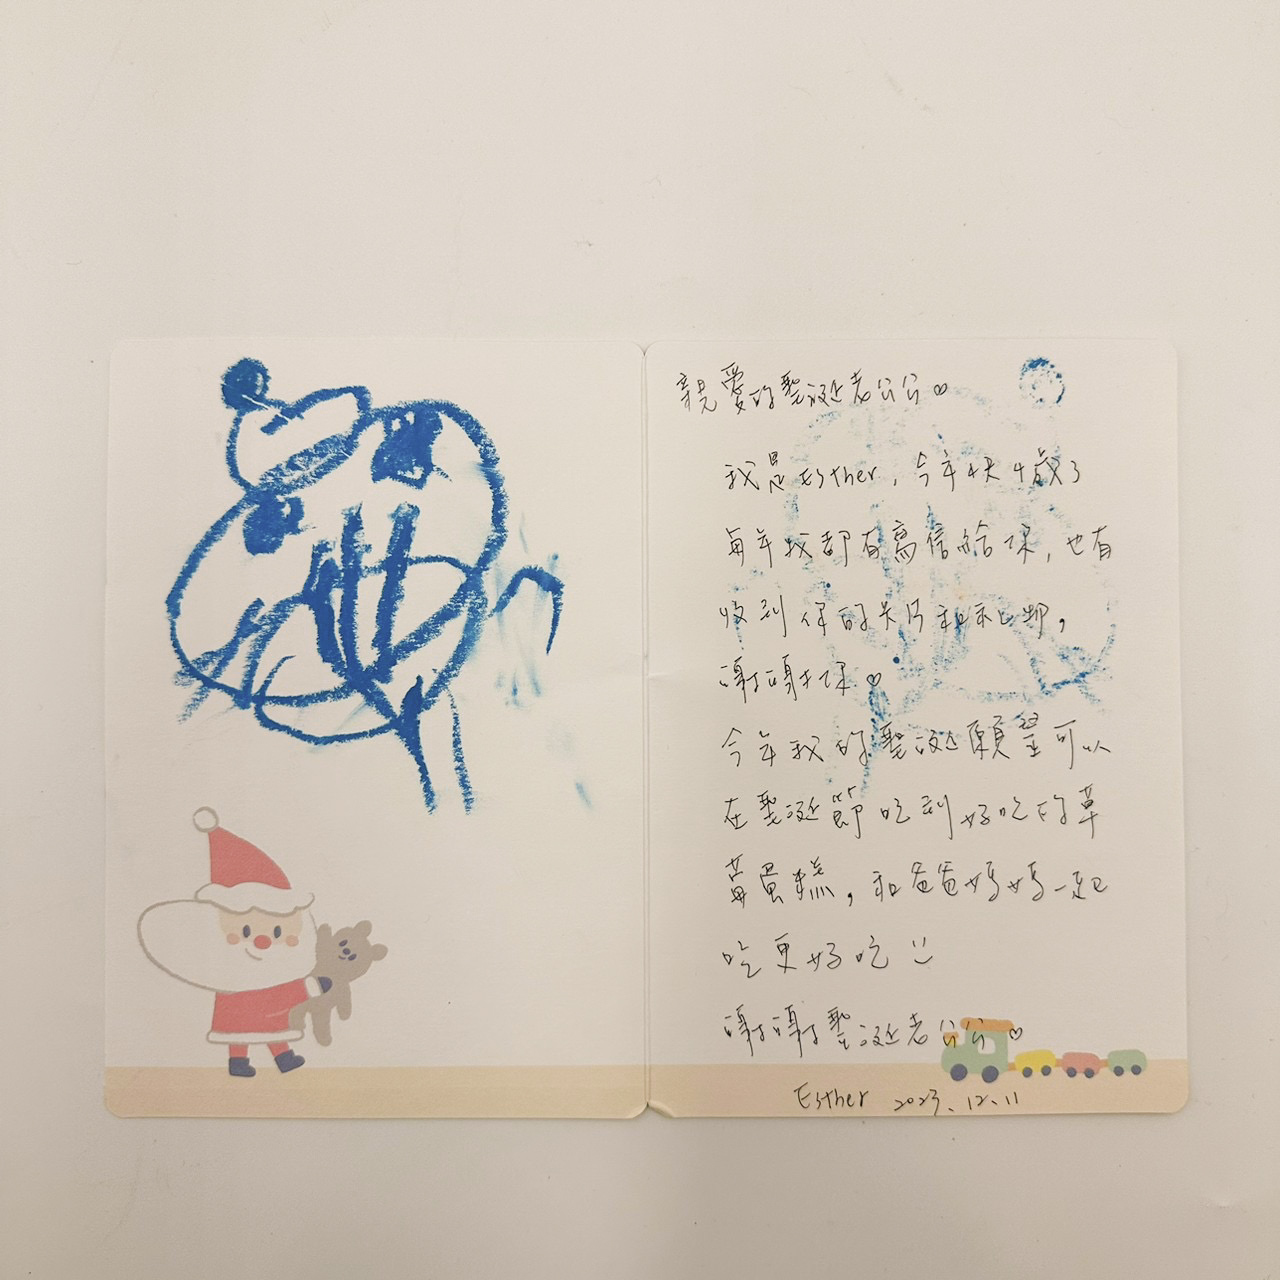 親愛的聖誕老公公♡
我是Esther，今年快4歲了
每年我都有寫信給你，也有
收到你的卡片和禮物，
謝謝你♡
今年我的聖誕願望可以
在聖誕節吃到好吃的草
莓蛋糕，和爸爸媽媽一起
吃更好吃 :)
謝謝聖誕老公公♡
Esther 2023.12.11